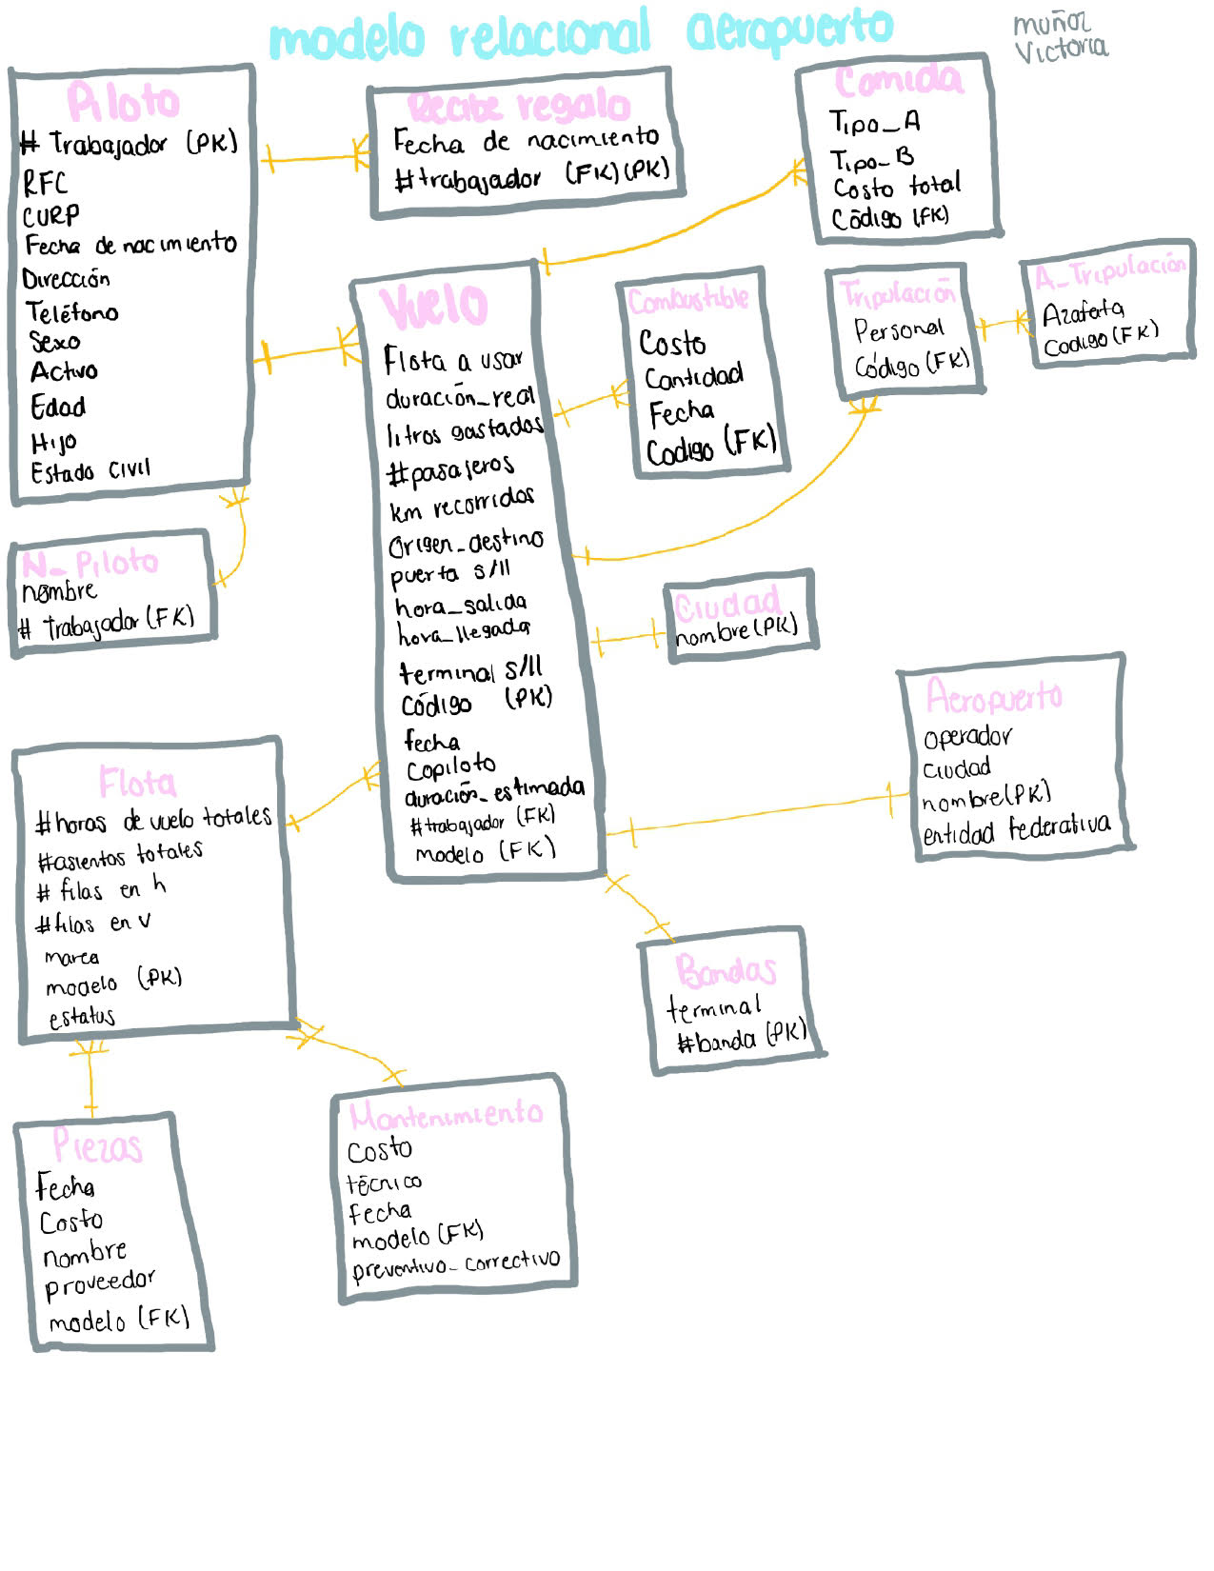 modelo relacional aeropuerto
muñoz
Victoria
Piloto
# Trabajador (PK)
RFC
CURP
Fecha de nacimiento
Dirección
Teléfono
Sexo
Activo
Edad
Hijo
Estado Civil
Recibe regalo
Fecha de nacimiento
#trabajador (FK)(PK)
Comida
Tipo_A
Tipo_B
Costo total
Código (FK)
Vuelo
Flota a usar
duración_real
litros gastados
#pasajeros
km recorridos
Origen_destino
puerta s/ll
hora_salida
hora_llegada
terminal s/ll
Código (PK)
fecha
Copiloto
duración_estimada
#trabajador (FK)
modelo (FK)
Combustible
Costo
Cantidad
Fecha
Codigo (FK)
Tripulación
Personal
Código (FK)
A_Tripulación
Azafata
Codigo (FK)
N_Piloto
nombre
# trabajador (FK)
Ciudad
nombre(PK)
Aeropuerto
operador
ciudad
nombre(PK)
entidad federativa
Flota
#horas de vuelo totales
#asientos totales
# filas en h
#filas en v
marca
modelo (PK)
estatus
Bandas
terminal
#banda (PK)
Piezas
Fecha
Costo
nombre
proveedor
modelo (FK)
Mantenimiento
Costo
técnico
fecha
modelo (FK)
preventivo_correctivo